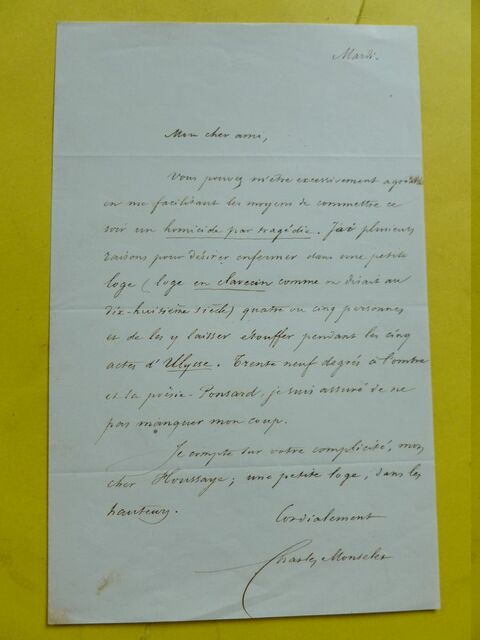 Mardi.
Mon cher ami,
Vous pouvez m'être excessivement agréable
en me facilitant les moyens de commettre ce
soir un homicide par tragédie. J'ai plusieurs
raisons pour désirer enfermer dans une petite
loge (loge en clavecin comme on disait au
dix-huitième siècle) quatre ou cinq personnes
et de les y laisser étouffer pendant les cinq
actes d'Ulysse. Trente neuf degrés à l'ombre
et la poésie-Ponsard, je suis assuré de ne
pas manquer mon coup.
Je compte sur votre complicité, mon
cher Houssaye; une petite loge, dans les
hauteurs.
Cordialement
Charles Monselet